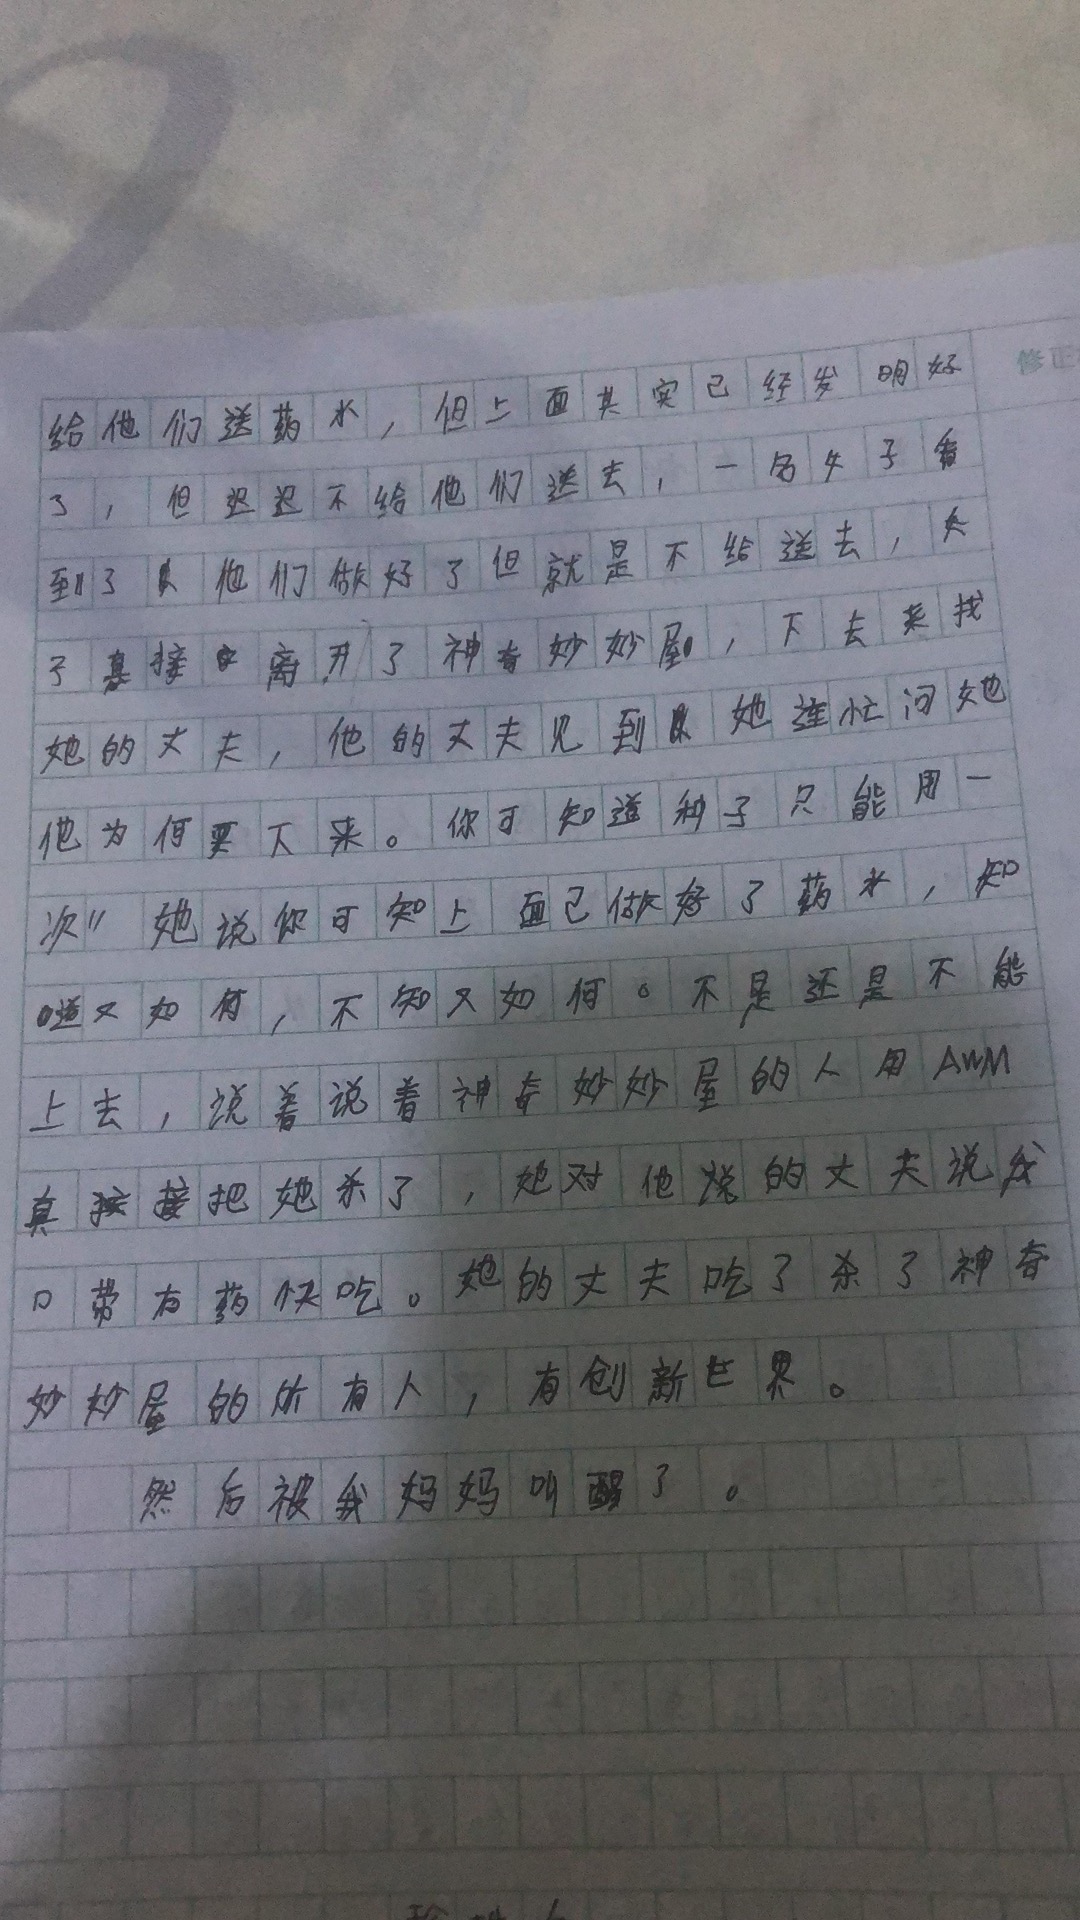 修正
给他们送药水，但上面其实已经发明好
了，但迟迟不给他们送去，一名女子看
到了他们做好了但就是不给送去，女
子真接离开了神奇妙妙屋，下去来找
她的丈夫，他的丈夫见到她连忙问她
他为何要下来。你可知道种子只能用一
次"她说你可知上面已做好了药水，知
道又如何，不知又如何。不是还是不能
上去，说着说着神奇妙妙屋的人用AWM
真接把她杀了，她对他说的丈夫说我
口带有药快吃。她的丈夫吃了杀了神奇
妙妙屋的所有人，有创新世界。
然后被我妈妈叫醒了。